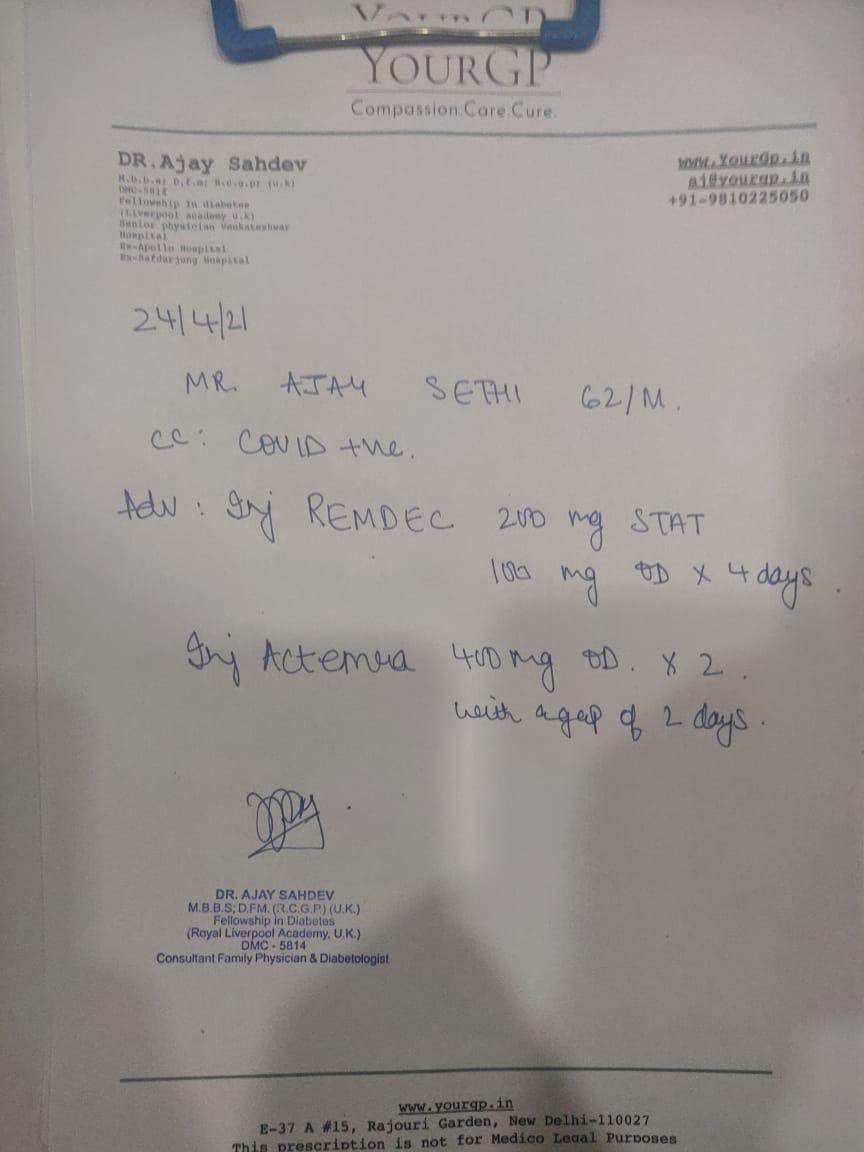 YOURGP
Compassion.Care.Cure.
DR.Ajay Sahdev
M.b.b.s; D.f.m; R.c.g.p; (u.k)
DMC-5814
Fellowship in diabetes
(Liverpool academy u.k)
Senior physician Venkateshwar
Hospital
Ex-Apollo Hospital
Ex-Safdarjung Hospital
www.YourGp.in
aj@yourgp.in
+91-9810225050
24/4/21
MR. AJAY SETHI 62/M.
CC: COVID +ve.
Adv: Inj REMDEC 200 mg STAT
100 mg OD X 4 days.
Inj Actemra 400 mg OD. X 2.
with a gap of 2 days.
DR. AJAY SAHDEV
M.B.B.S; D.FM. (R.C.G.P.) (U.K.)
Fellowship in Diabetes
(Royal Liverpool Academy, U.K.)
DMC - 5814
Consultant Family Physician & Diabetologist
www.yourgp.in
E-37 A #15, Rajouri Garden, New Delhi-110027
This prescription is not for Medico Legal Purposes